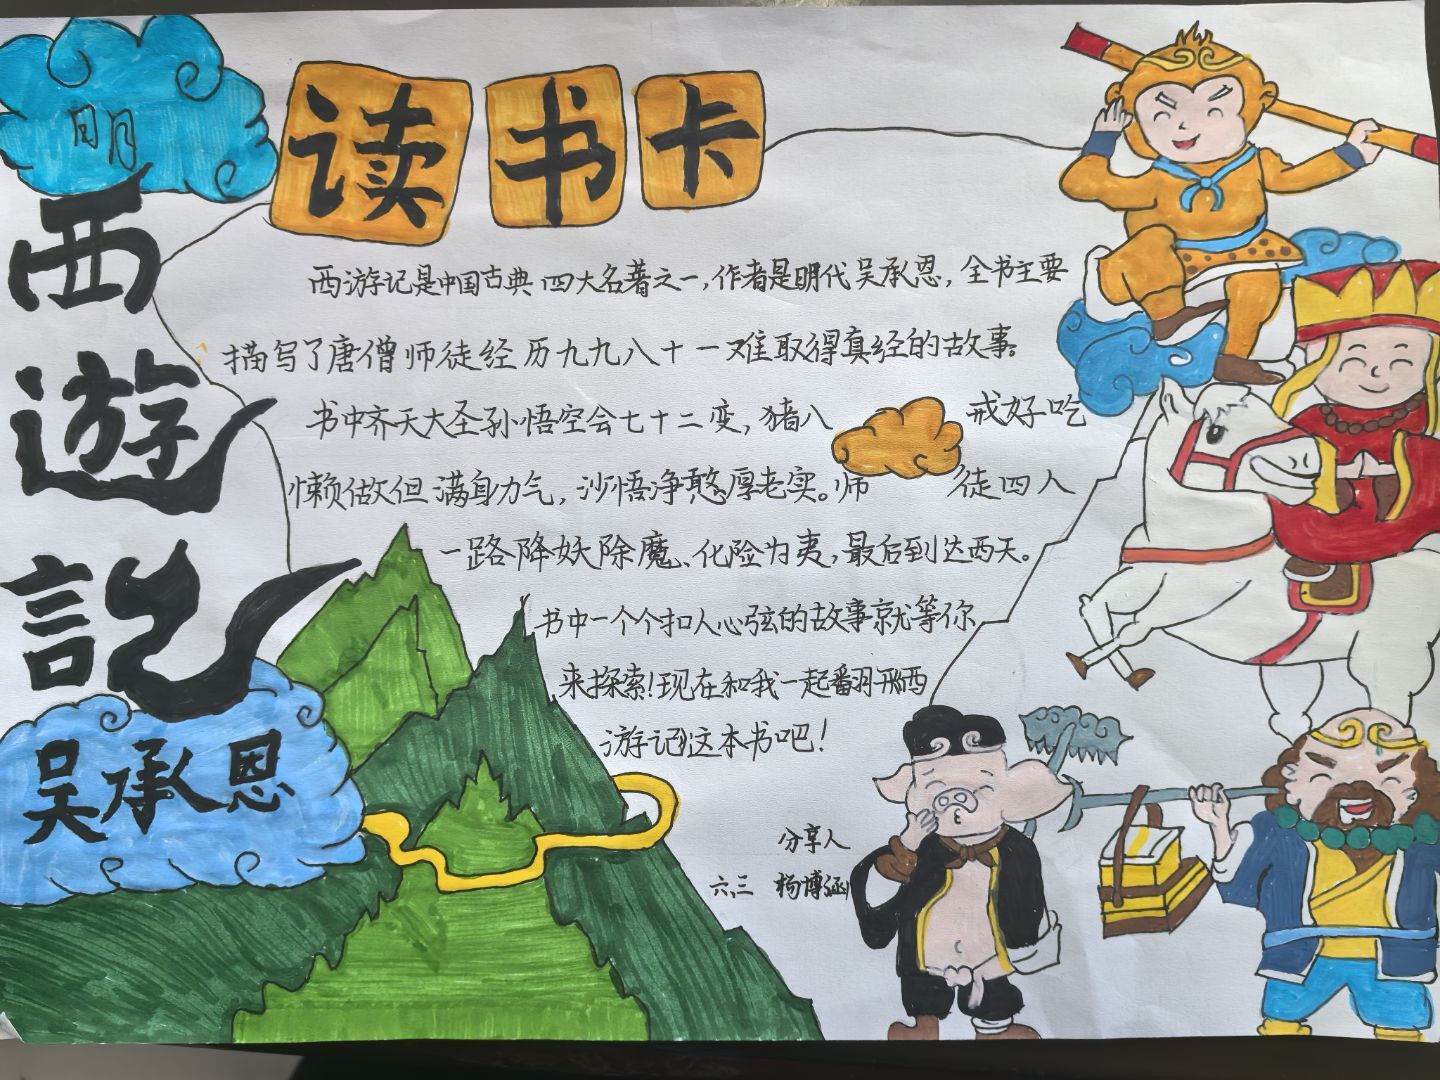 读书卡
明
西遊記
吴承恩
西游记是中国古典四大名著之一，作者是明代吴承恩，全书主要
描写了唐僧师徒经历九九八十一难取得真经的故事。
书中齐天大圣孙悟空会七十二变，猪八戒好吃
懒做但满身力气，沙悟净憨厚老实。师徒四人
一路降妖除魔、化险为夷，最后到达西天。
书中一个个扣人心弦的故事就等你
来探索！现在和我一起翻开西
游记这本书吧！
分享人
六、三 杨博涵